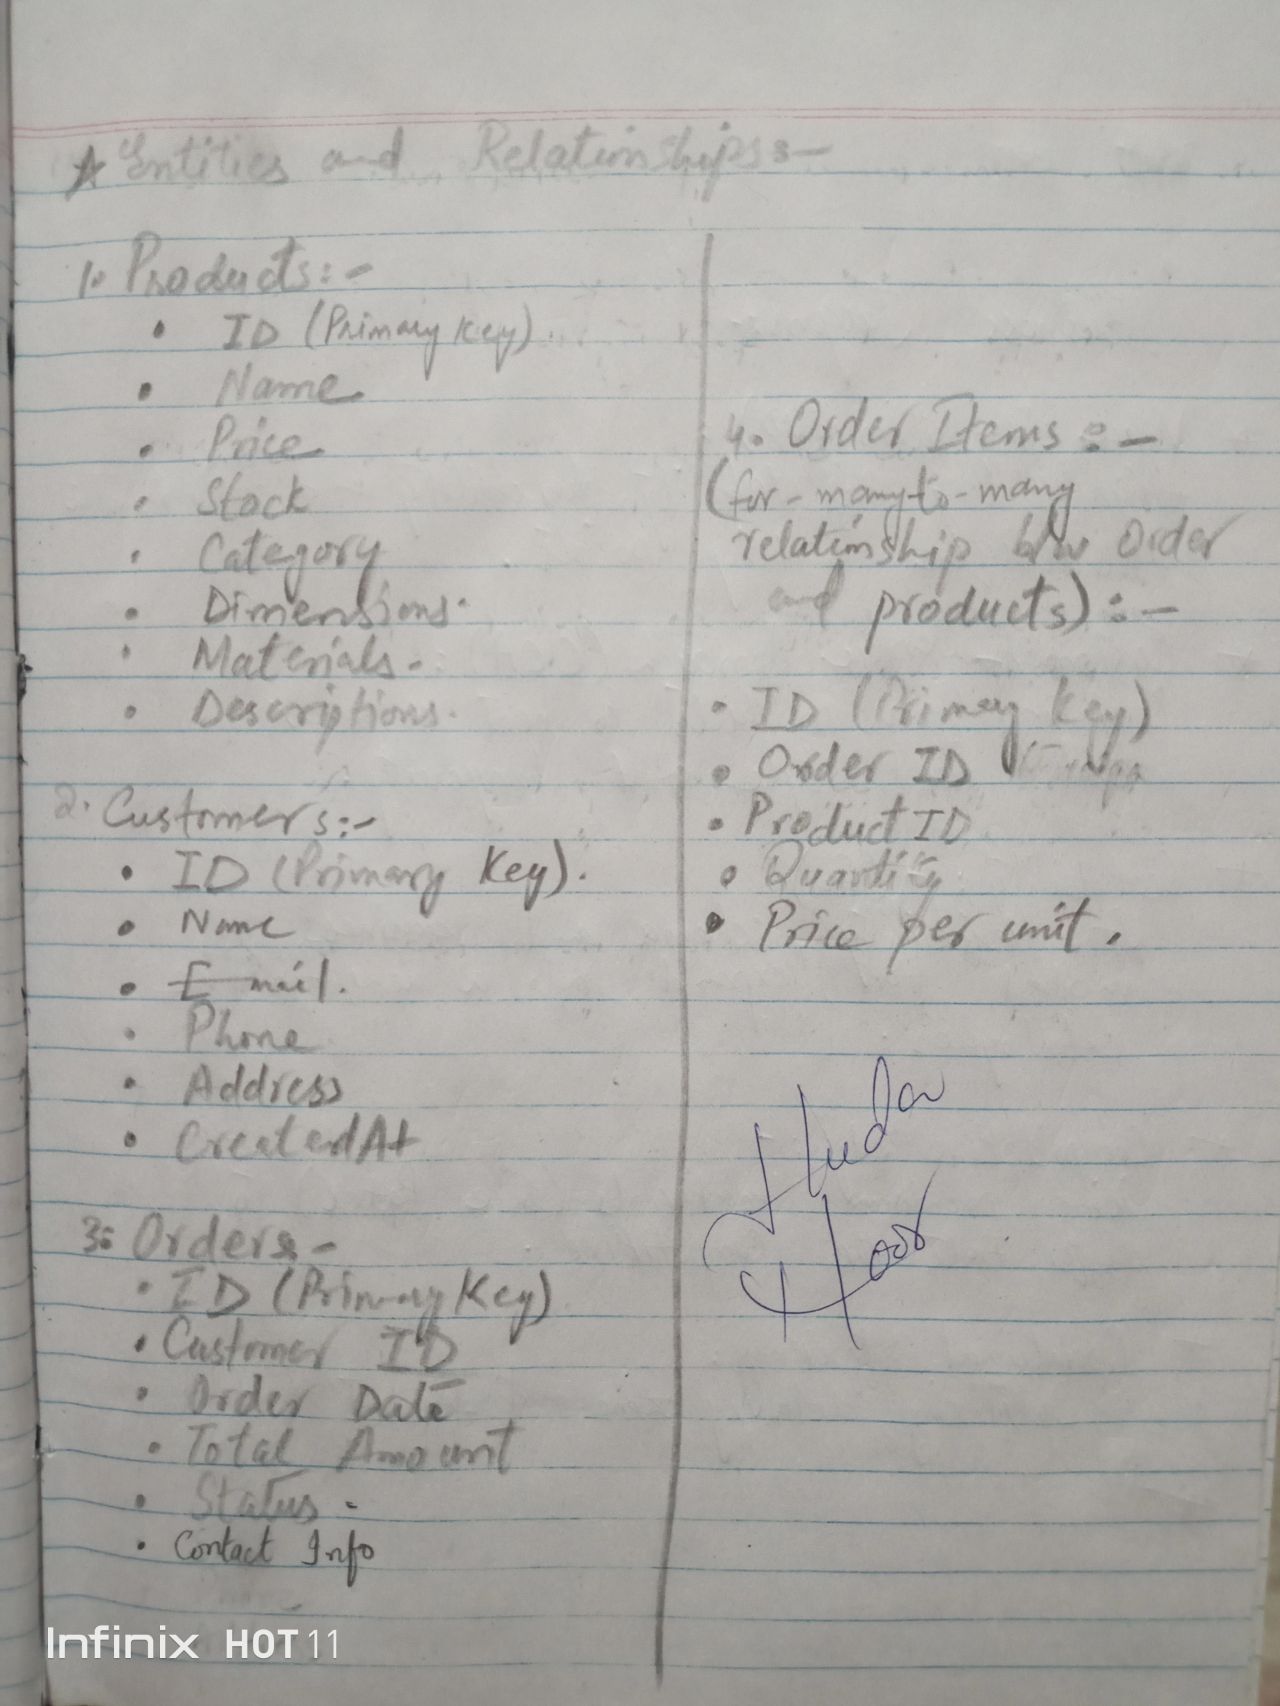 ☆ Entities and Relationships:-
1. Products:-
• ID (Primary Key).
• Name
• Price
• Stock
• Category
• Dimensions.
• Materials.
• Descriptions.
2. Customers:-
• ID (Primary Key).
• Name
• E-mail.
• Phone
• Address
• CreatedAt
3. Orders:-
• ID (Primary Key)
• Customer ID
• Order Date
• Total Amount
• Status -
• Contact Info
4. Order Items :-
(for-many-to-many
relationship b/w Order
and products):-
• ID (Primary Key)
• Order ID
• Product ID
• Quantity
• Price per unit.
Huda
Hoor
Infinix HOT 11